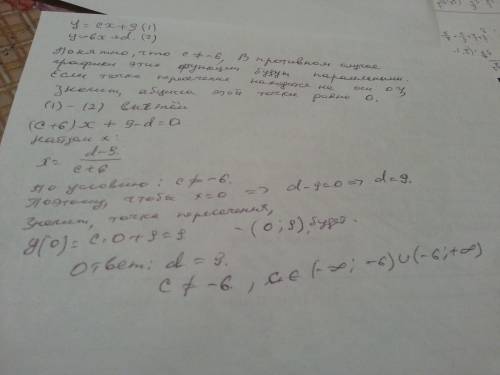 y = cx + 9 (1)
y = -6x + d. (2)
Понятно, что c ≠ -6. В противном случае
графики этих функций будут параллельны.
Если точка пересечения находится на оси OY,
Значит, абсцисса этой точки равно 0.
(1) - (2) вычтем
(c+6)x + 9-d = 0
Найдём x:
x = d-9 / c+6
По условию: c ≠ -6.
Поэтому, чтобы x=0 => d-9=0 => d=9.
Значит, точка пересечения,
y(0) = c·0 + 9 = 9 - (0; 9) будет.
Ответ: d = 9.
c ≠ -6, c ∈ (-∞; -6) ∪ (-6; +∞)